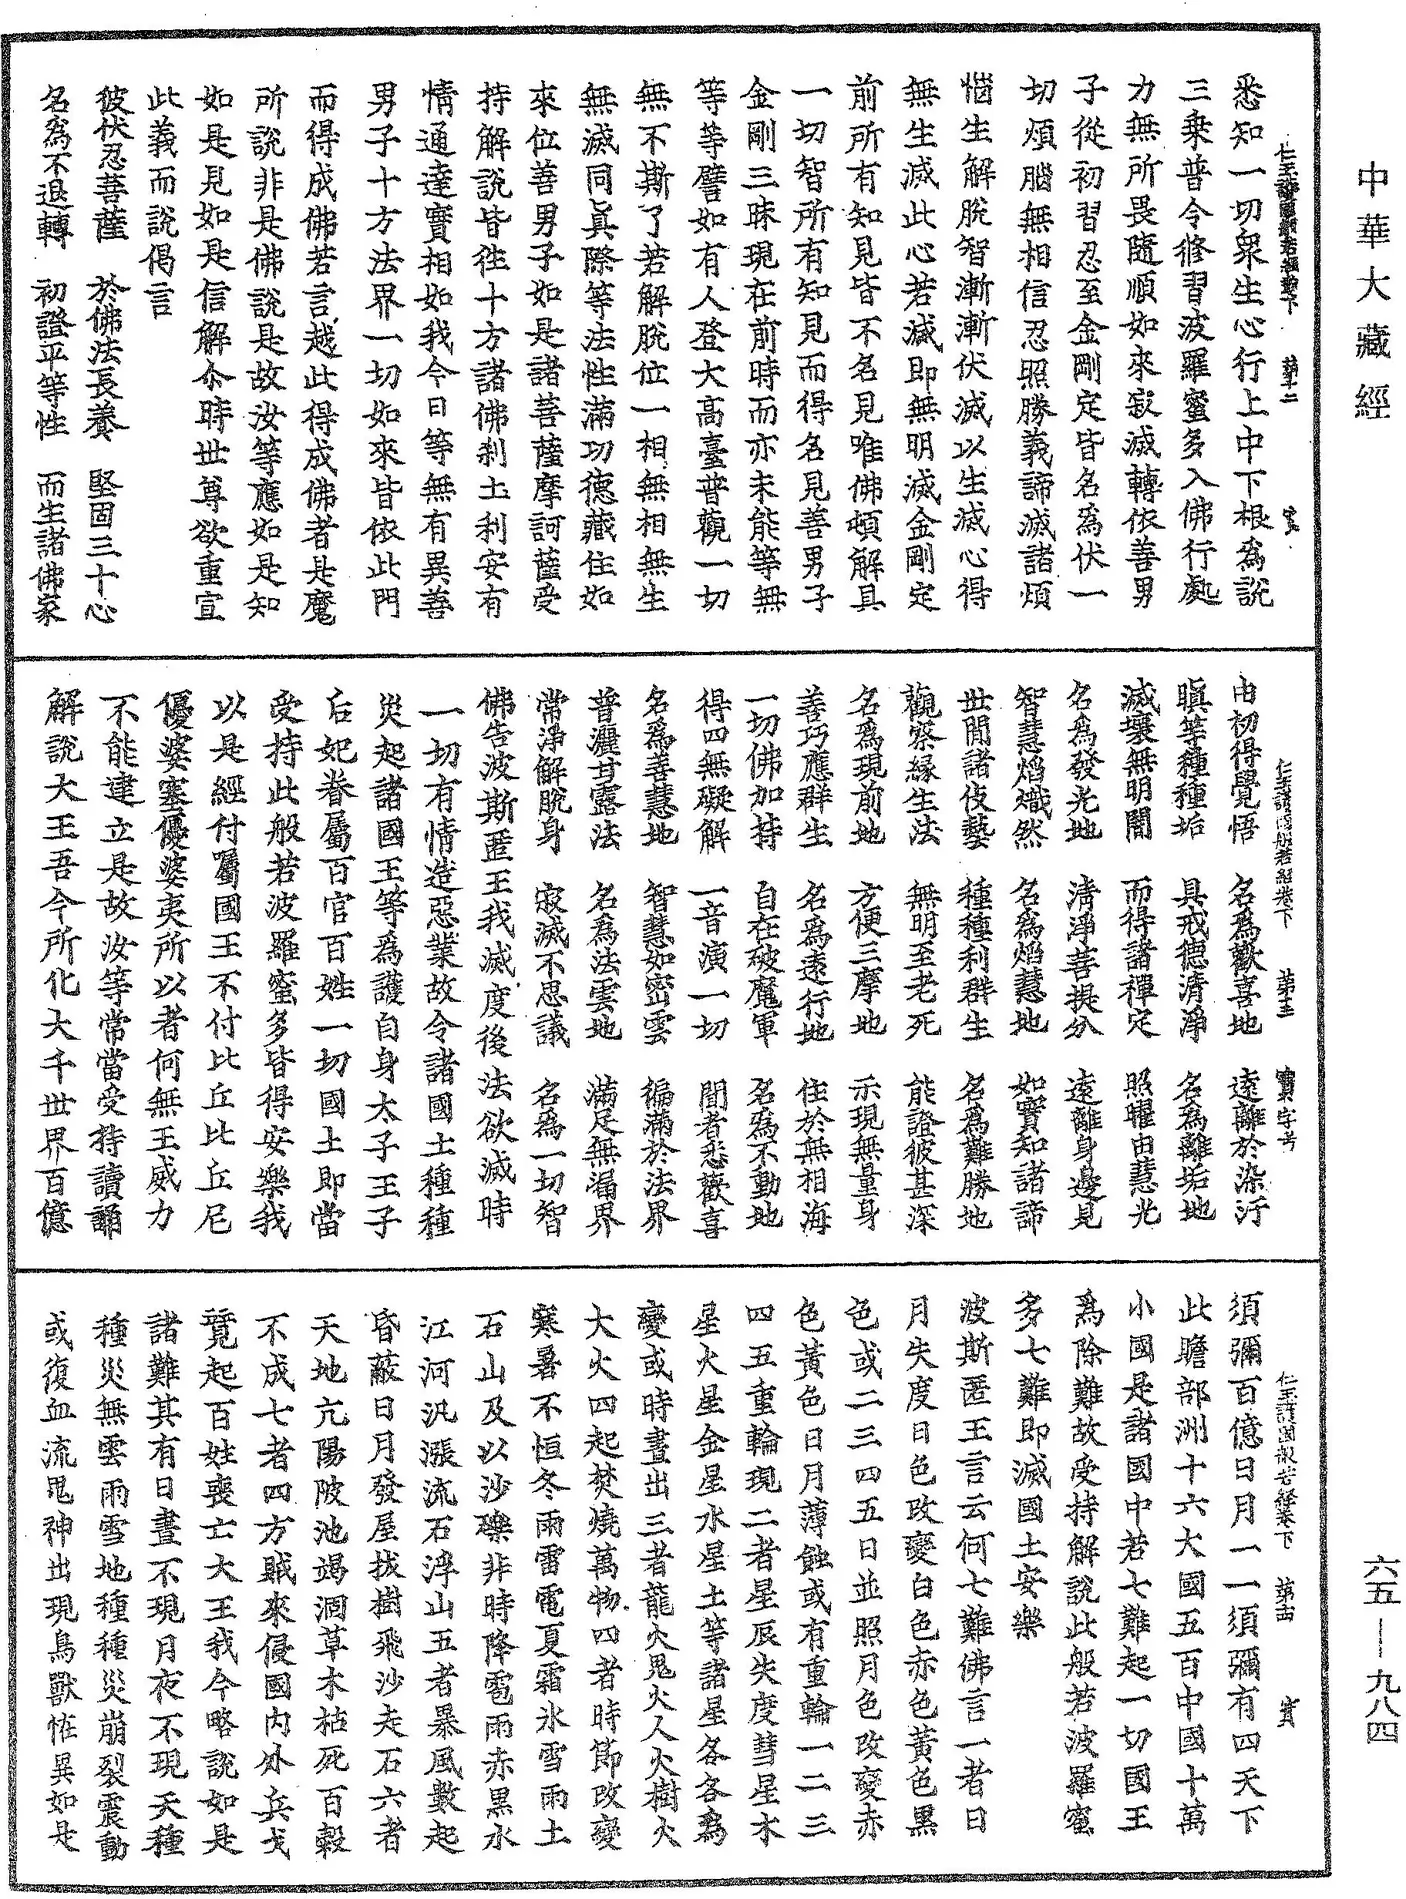 中華大藏經
仁王護國般若經卷下 第十二
悉知一切衆生心行上中下根爲說
三乗普令修習波羅蜜多入佛行處
力無所畏隨順如來寂滅轉依善男
子從初習忍至金剛定皆名爲伏一
切煩腦無相信忍照勝義諦滅諸煩
惱生解脫智漸漸伏滅以生滅心得
無生滅此心若滅即無明滅金剛定
前所有知見皆不名見唯佛頓解具
一切智所有知見而得名見善男子
金剛三昧現在前時而亦未能等無
等等譬如有人登大高臺普觀一切
無不斯了若解脫位一相無相無生
無滅同眞際等法性滿功德藏住如
來位善男子如是諸菩薩摩訶薩受
持解說皆徃十方諸佛刹土利安有
情通達實相如我今日等無有異善
男子十方法界一切如來皆依此門
而得成佛若言越此得成佛者是魔
所說非是佛說是故汝等應如是知
如是見如是信解尒時世尊欲重宣
此義而說偈言
彼伏忍菩薩 於佛法長養 堅固三十心
名爲不退轉 初證平等性 而生諸佛家
仁王護國般若經卷下 第十三 寶字号
由初得覺悟 名爲歡喜地 遠離於染汙
瞋等種種垢 具戒德清淨 名爲離垢地
滅壞無明闇 而得諸禪定 照曜由慧光
名爲發光地 淸淨菩提分 遠離身邊見
智慧焰熾然 名爲焰慧地 如實知諸諦
世間諸伎藝 種種利群生 名爲難勝地
觀察緣生法 無明至老死 能證彼甚深
名爲現前地 方便三摩地 示現無量身
善巧應群生 名爲遠行地 住於無相海
一切佛加持 自在破魔軍 名爲不動地
得四無礙解 一音演一切 聞者悉歡喜
名爲善慧地 智慧如密雲 徧滿於法界
普灑甘露法 名爲法雲地 滿足無漏界
常淨解脫身 寂滅不思議 名爲一切智
佛告波斯匿王我滅度後法欲滅時
一切有情造惡業故令諸國土種種
災起諸國王等爲護自身太子王子
后妃眷屬百官百姓一切國土即當
受持此般若波羅蜜多皆得安樂我
以是經付囑國王不付比丘比丘尼
優婆塞優婆夷所以者何無王威力
不能建立是故汝等常當受持讀誦
解說大王吾今所化大千世界百億
仁王護國般若經卷下 第十四 寶
須彌百億日月一一須彌有四天下
此贍部洲十六大國五百中國十萬
小國是諸國中若七難起一切國王
爲除難故受持解說此般若波羅蜜
多七難即滅國土安樂
波斯匿王言云何七難佛言一者日
月失度日色改變白色赤色黃色黑
色或二三四五日並照月色改變赤
色黃色日月薄蝕或有重輪一二三
四五重輪現二者星辰失度彗星木
星火星金星水星土等諸星各各爲
變或時晝出三者龍火鬼火人火樹火
大火四起焚燒萬物四者時節改變
寒暑不恒冬雨雷電夏霜氷雪雨土
石山及以沙礫非時降雹雨赤黑水
江河汎漲流石浮山五者暴風數起
昏蔽日月發屋拔樹飛沙走石六者
天地亢陽陂池竭涸草木枯死百穀
不成七者四方賊來侵國内外兵戈
競起百姓喪亡大王我今略說如是
諸難其有日晝不現月夜不現天種
種災無雲雨雪地種種災崩裂震動
或復血流鬼神出現鳥獸恠異如是
六五—九八四